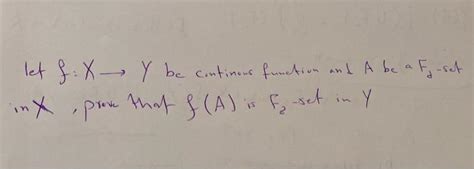 let f: X → Y be continous function and A be a F₂-set
in X , prove that f(A) is F₂-set in Y